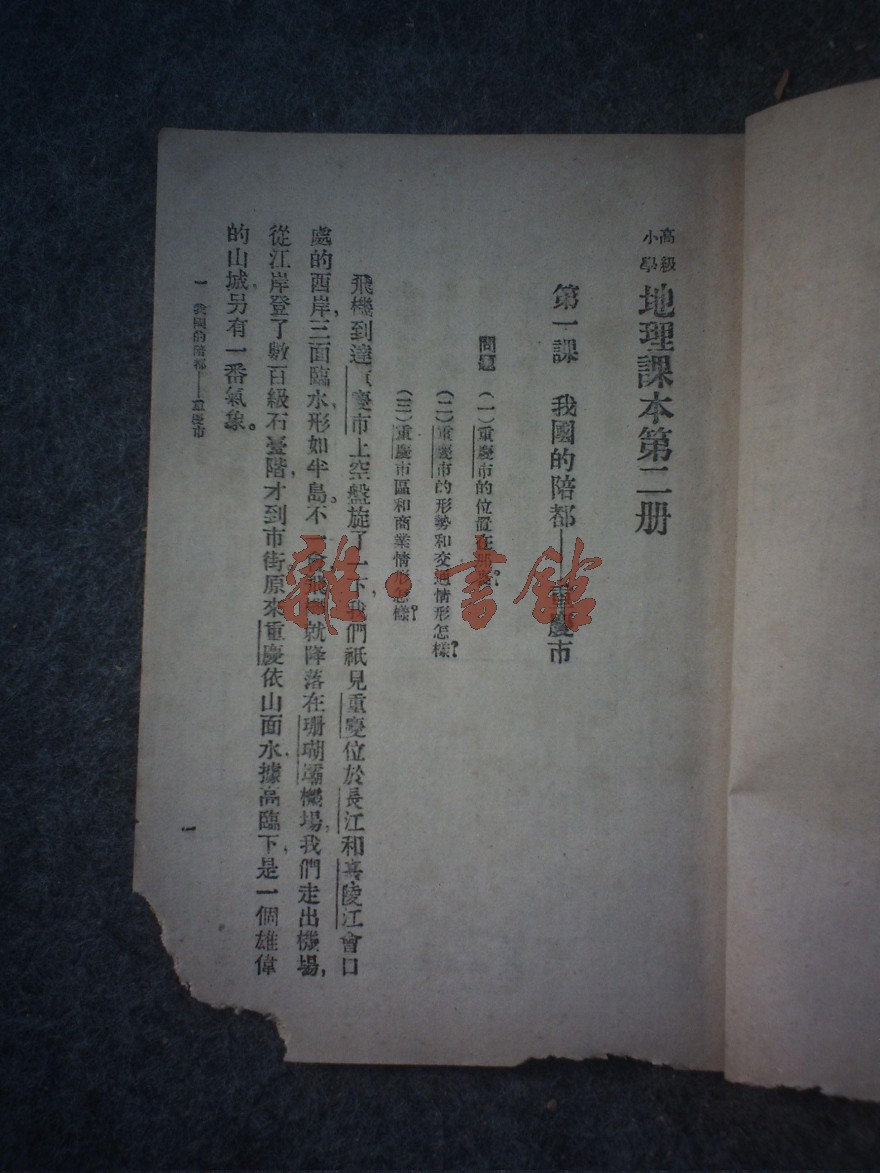 高級小學 地理課本第二册
第一課 我國的陪都——重慶市
問題 (一)重慶市的位置在那裏?
(二)重慶市的形勢和交通情形怎樣?
(三)重慶市區和商業情形怎樣?
飛機到達重慶市上空盤旋了一下,我們祇見重慶位於長江和嘉陵江會口
處的西岸,三面臨水,形如半島。不一會飛機就降落在珊瑚壩機場,我們走出機場,
從江岸登了數百級石臺階,才到市街。原來重慶依山面水,據高臨下,是一個雄偉
的山城,另有一番氣象。
一 我國的陪都——重慶市
一
雜·書館